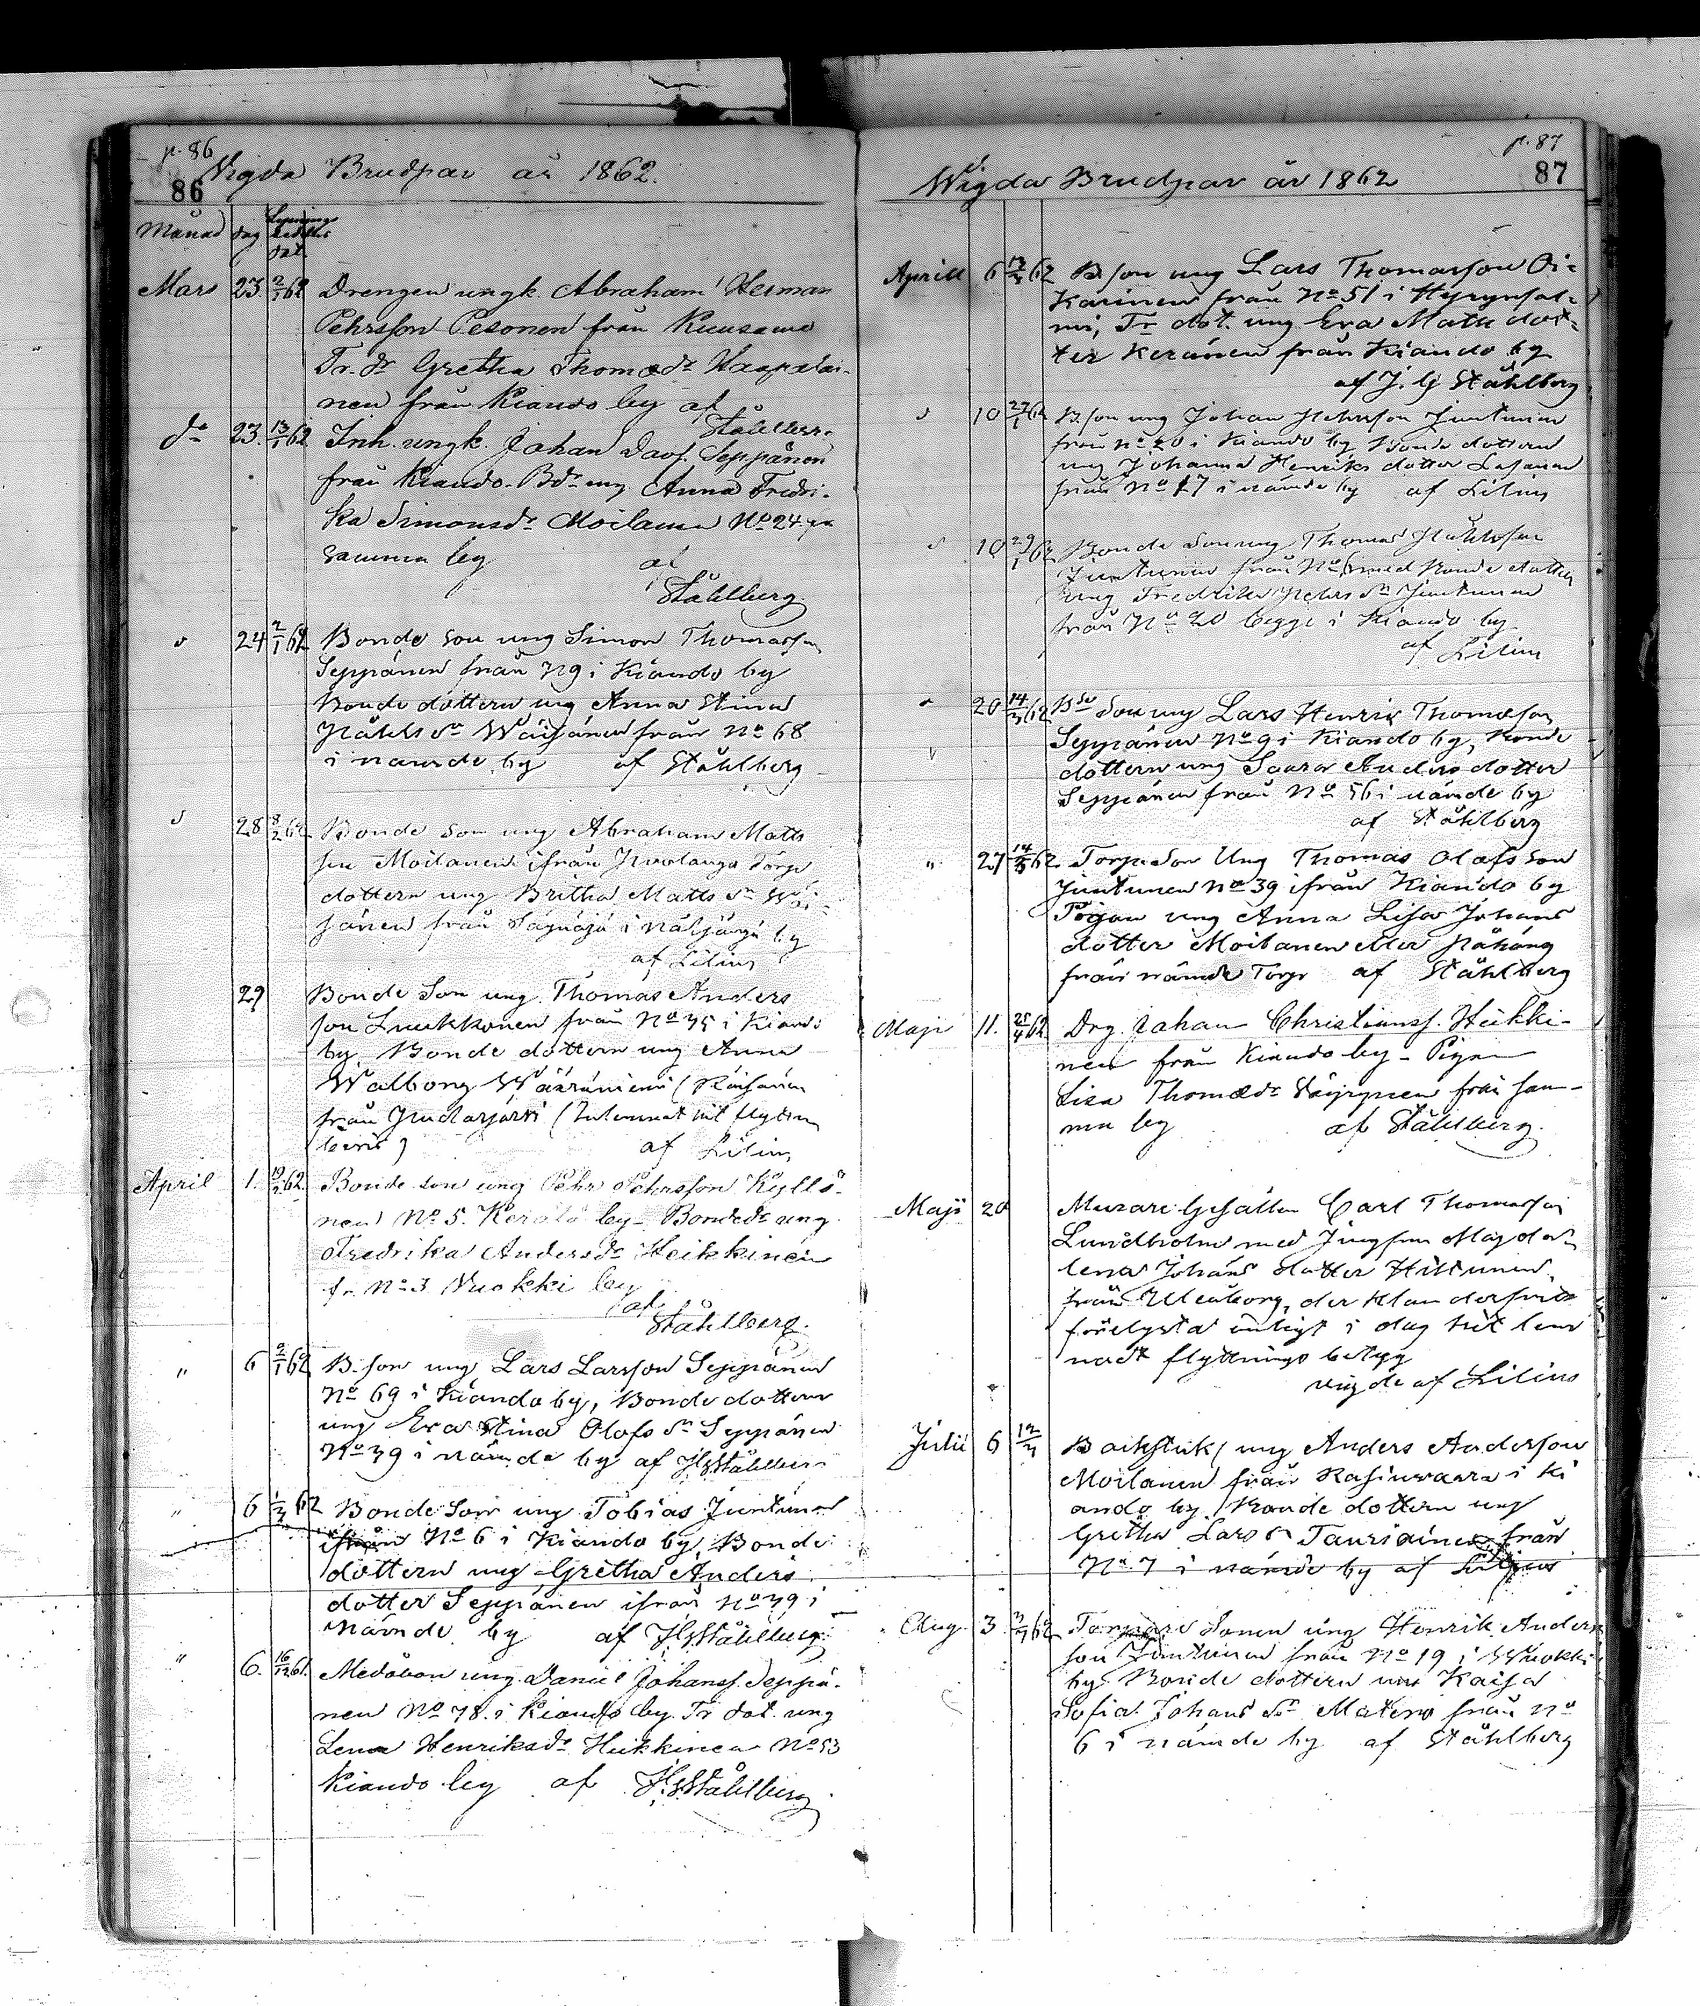 p. 86
86
Vigda Brudpar år 1862.
Månad dag Lysnings sedelns dat
Mars 23 2/3 62 Drengen ungk. Abraham Herman
Pehrsson Pesonen från Kuusamo
Tr. dr Gretha Thomædr Haapalai-
nen från Kiando by af
Ståhlber.
do 23. 13/1 62 Inh. ungk. Johan Davs. Seppänen
från Kiando. Bdr ung Anna Fredri-
ka Simonsdr Moilanen No 24 på
samma by af
Ståhlberg.
24 2/1 62 Bonde son ung Simon Thomasson
Seppänen från N 9 i Kiando by
Bonde dottern ung Anna Stina
No 68
i nämde by af Ståhlberg
28 8/2 62 Bonde son ung Abraham Matts
son Moilanen ifrån Torp
dottern ung Britha Matts Dr Wäi-
sänen från i Näljängä by
af Lilius
29 Bonde Son ung Thomas Anders
son Luukkonen från No 45 i Kiando
by Bonde dottern ung Anna
Walborg
från Judasjärvi
bevis) af Lilius
April 1. 19/2 62 Bonde son ung Pehr Pehrsson Kyllö-
nen No 5. Kerälä by Bondedr ung
Fredrika Andersdr Heikkinen
fr. No 3 Vuokki by
af
Ståhlberg.
" 6 2/1 62 B. son ung Lars Larsson Seppänen
No 69 i Kiando by, Bonde dottern
ung Eva Stina Olofs Dr Seppänen
No 39 i nämde by af JGStåhlber
" 6 1/3 62 Bonde Son ung Tobias Juntunen
ifrån No 6 i Kiando by, Bonde
dottern ung Gretha Anders
dotter Seppänen ifrån No 79 i
Nämde by af JGStåhlberg
" 6. 16/12 61. Medåbon ung Daniel Johanss. Seppä-
nen No 78. i Kiando by. Tr dot. ung
Lena Henriksdr Heikkinen No 53
Kiando by af JGStåhlberg
p. 87
87
Wigda Brudpar år 1862
Aprill 6 62 B. son ung Lars Thomasson Oi-
Karinen från No 51 i Hyrynsal-
mi, Tr dot. ung Eva Matts dot-
ter Keränen från Kiando by
af J. G Ståhlberg
10 27/1 62 B. son ung Johan Pehrsson Juntunen
från No 20 i Kiando by Bonde dottern
ung Johanna Henriks dotter
från No 17 i nämde by af Lilius
10 29/1 62 Bonde Son ung Thomas
Juntunen från No 6 med Bonde dottern
ung Fredrika Pehrs Dr Juntunen
från No 20 begge i Kiando by
af Lilius
20 14/3 62 Bde Son ung Lars Henrik Thomasson
Seppänen No 9 i Kiando by, Bonde
dottern ung Saara Anders dotter
Seppänen från No 56 i nämde by
af Ståhlberg
" 27 14/3 62 Torpe Son Ung Thomas Olofs Son
Juntunen No 39 ifrån Kiando by
Pigan ung Anna Lisa Johans
dotter Moilanen eller
från nämde Torp af Ståhlberg
Maji 11. 25/4 62 Drg. Johan Christianss. Heikki-
nen från Kiando by - Pigan
Lisa Thomædr Väyrynen från sam-
ma by af Ståhlberg.
Maji 20 Murare Gesällen Carl Thomasson
Lundholm med Jungfrun Magda-
lena Johans dotter Hiltunen,
från Uleåborg, der
förelysta enligt i dag hit lem
nadt flyttnings betyg
vigde af Lilius
Julii 6 12/4 Backstuk/ ung Anders Anderson
Moilanen från Rasinwaara i Ki
ando by Bonde dottern ung
Gretha Lars Dr Tauriainen från
No 7 i nämde by af Lilius
Aug. 3 62 Torpare Sonen ung Henrik Anders
son Juntunen från No 19 i Wuokki
by Bonde dottern ung Kaisa
Sofia Johans Dr Matero från No
6 i nämde by af Ståhlberg